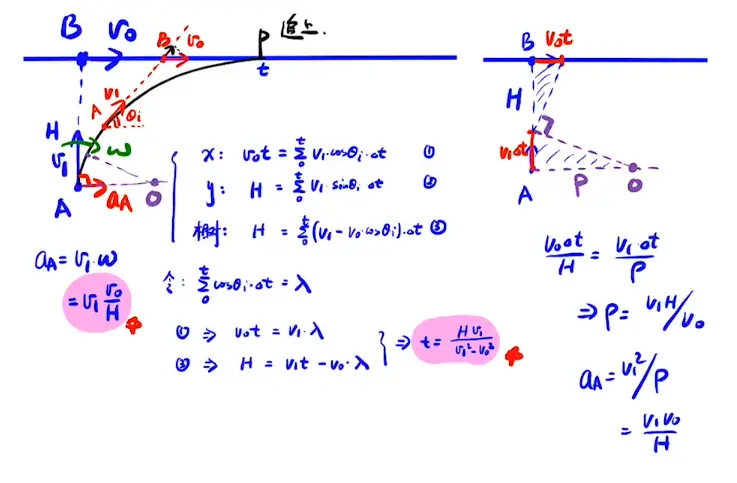 B v₀ B v₀ P 追上.
t
A v₁ θi
H
v₁ ω
A a_A O
x: v₀t = Σ₀ᵗ v₁·cosθi·Δt ①
y: H = Σ₀ᵗ v₁·sinθi·Δt ②
相对: H = Σ₀ᵗ (v₁ - v₀·cosθi)·Δt ③
令: Σ₀ᵗ cosθi·Δt = λ
① ⇒ v₀t = v₁·λ
③ ⇒ H = v₁t - v₀·λ
⇒ t = Hv₁/(v₁² - v₀²)
a_A = v₁·ω
= v₁ v₀/H
B v₀t
H
v₁Δt
A ρ O
v₀Δt/H = v₁·Δt/ρ
⇒ ρ = v₁H/v₀
a_A = v₁²/ρ
= v₁v₀/H